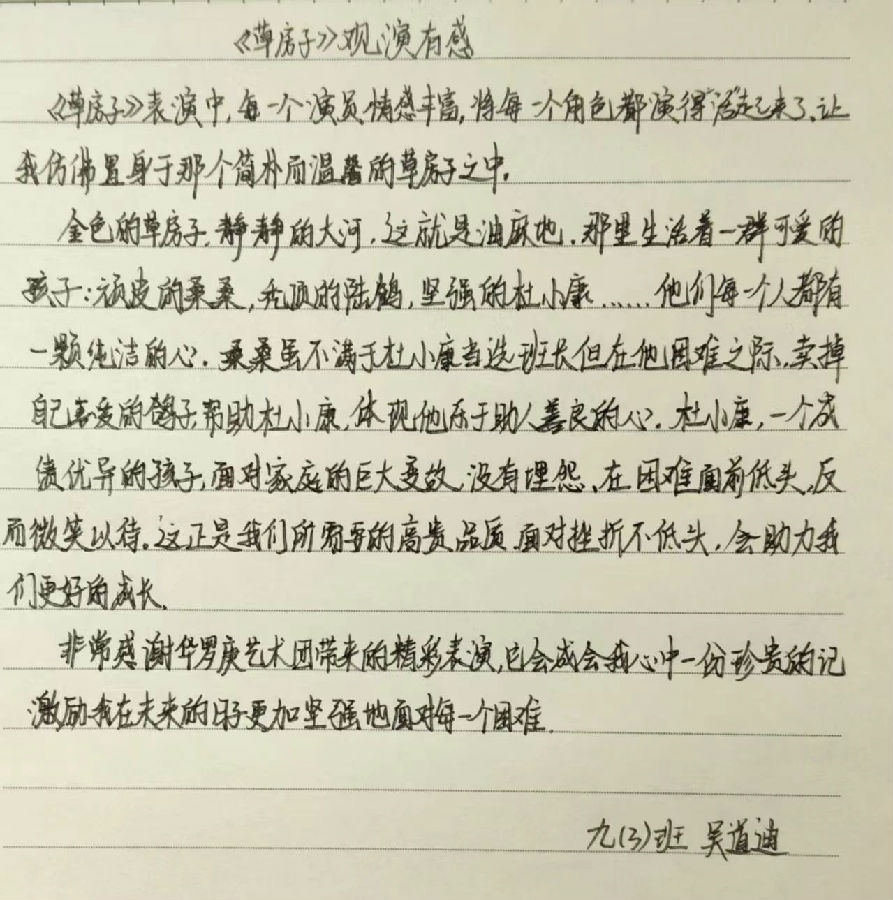 《草房子》观演有感
《草房子》表演中,每一个演员情感丰富,将每一个角色都演得“活”起来了、让
我仿佛置身于那个简朴而温馨的草房子之中。
金色的草房子,静静的大河,这就是油麻地,那里生活着一群可爱的
孩子:顽皮的桑桑,秃顶的陆鹤,坚强的杜小康……他们每一个人都有
一颗纯洁的心。桑桑虽不满于杜小康当选班长但在他困难之际,卖掉
自己喜爱的鸽子,帮助杜小康,体现他乐于助人善良的心。杜小康,一个成
绩优异的孩子,面对家庭的巨大变故,没有埋怨、在困难面前低头,反
而微笑以待。这正是我们所需要的高贵品质,面对挫折不低头,会助力我
们更好的成长。
非常感谢华罗庚艺术团带来的精彩表演,它会成会我心中一份珍贵的记
激励我在未来的日子更加坚强地面对每一个困难.
九(3)班 吴道迪